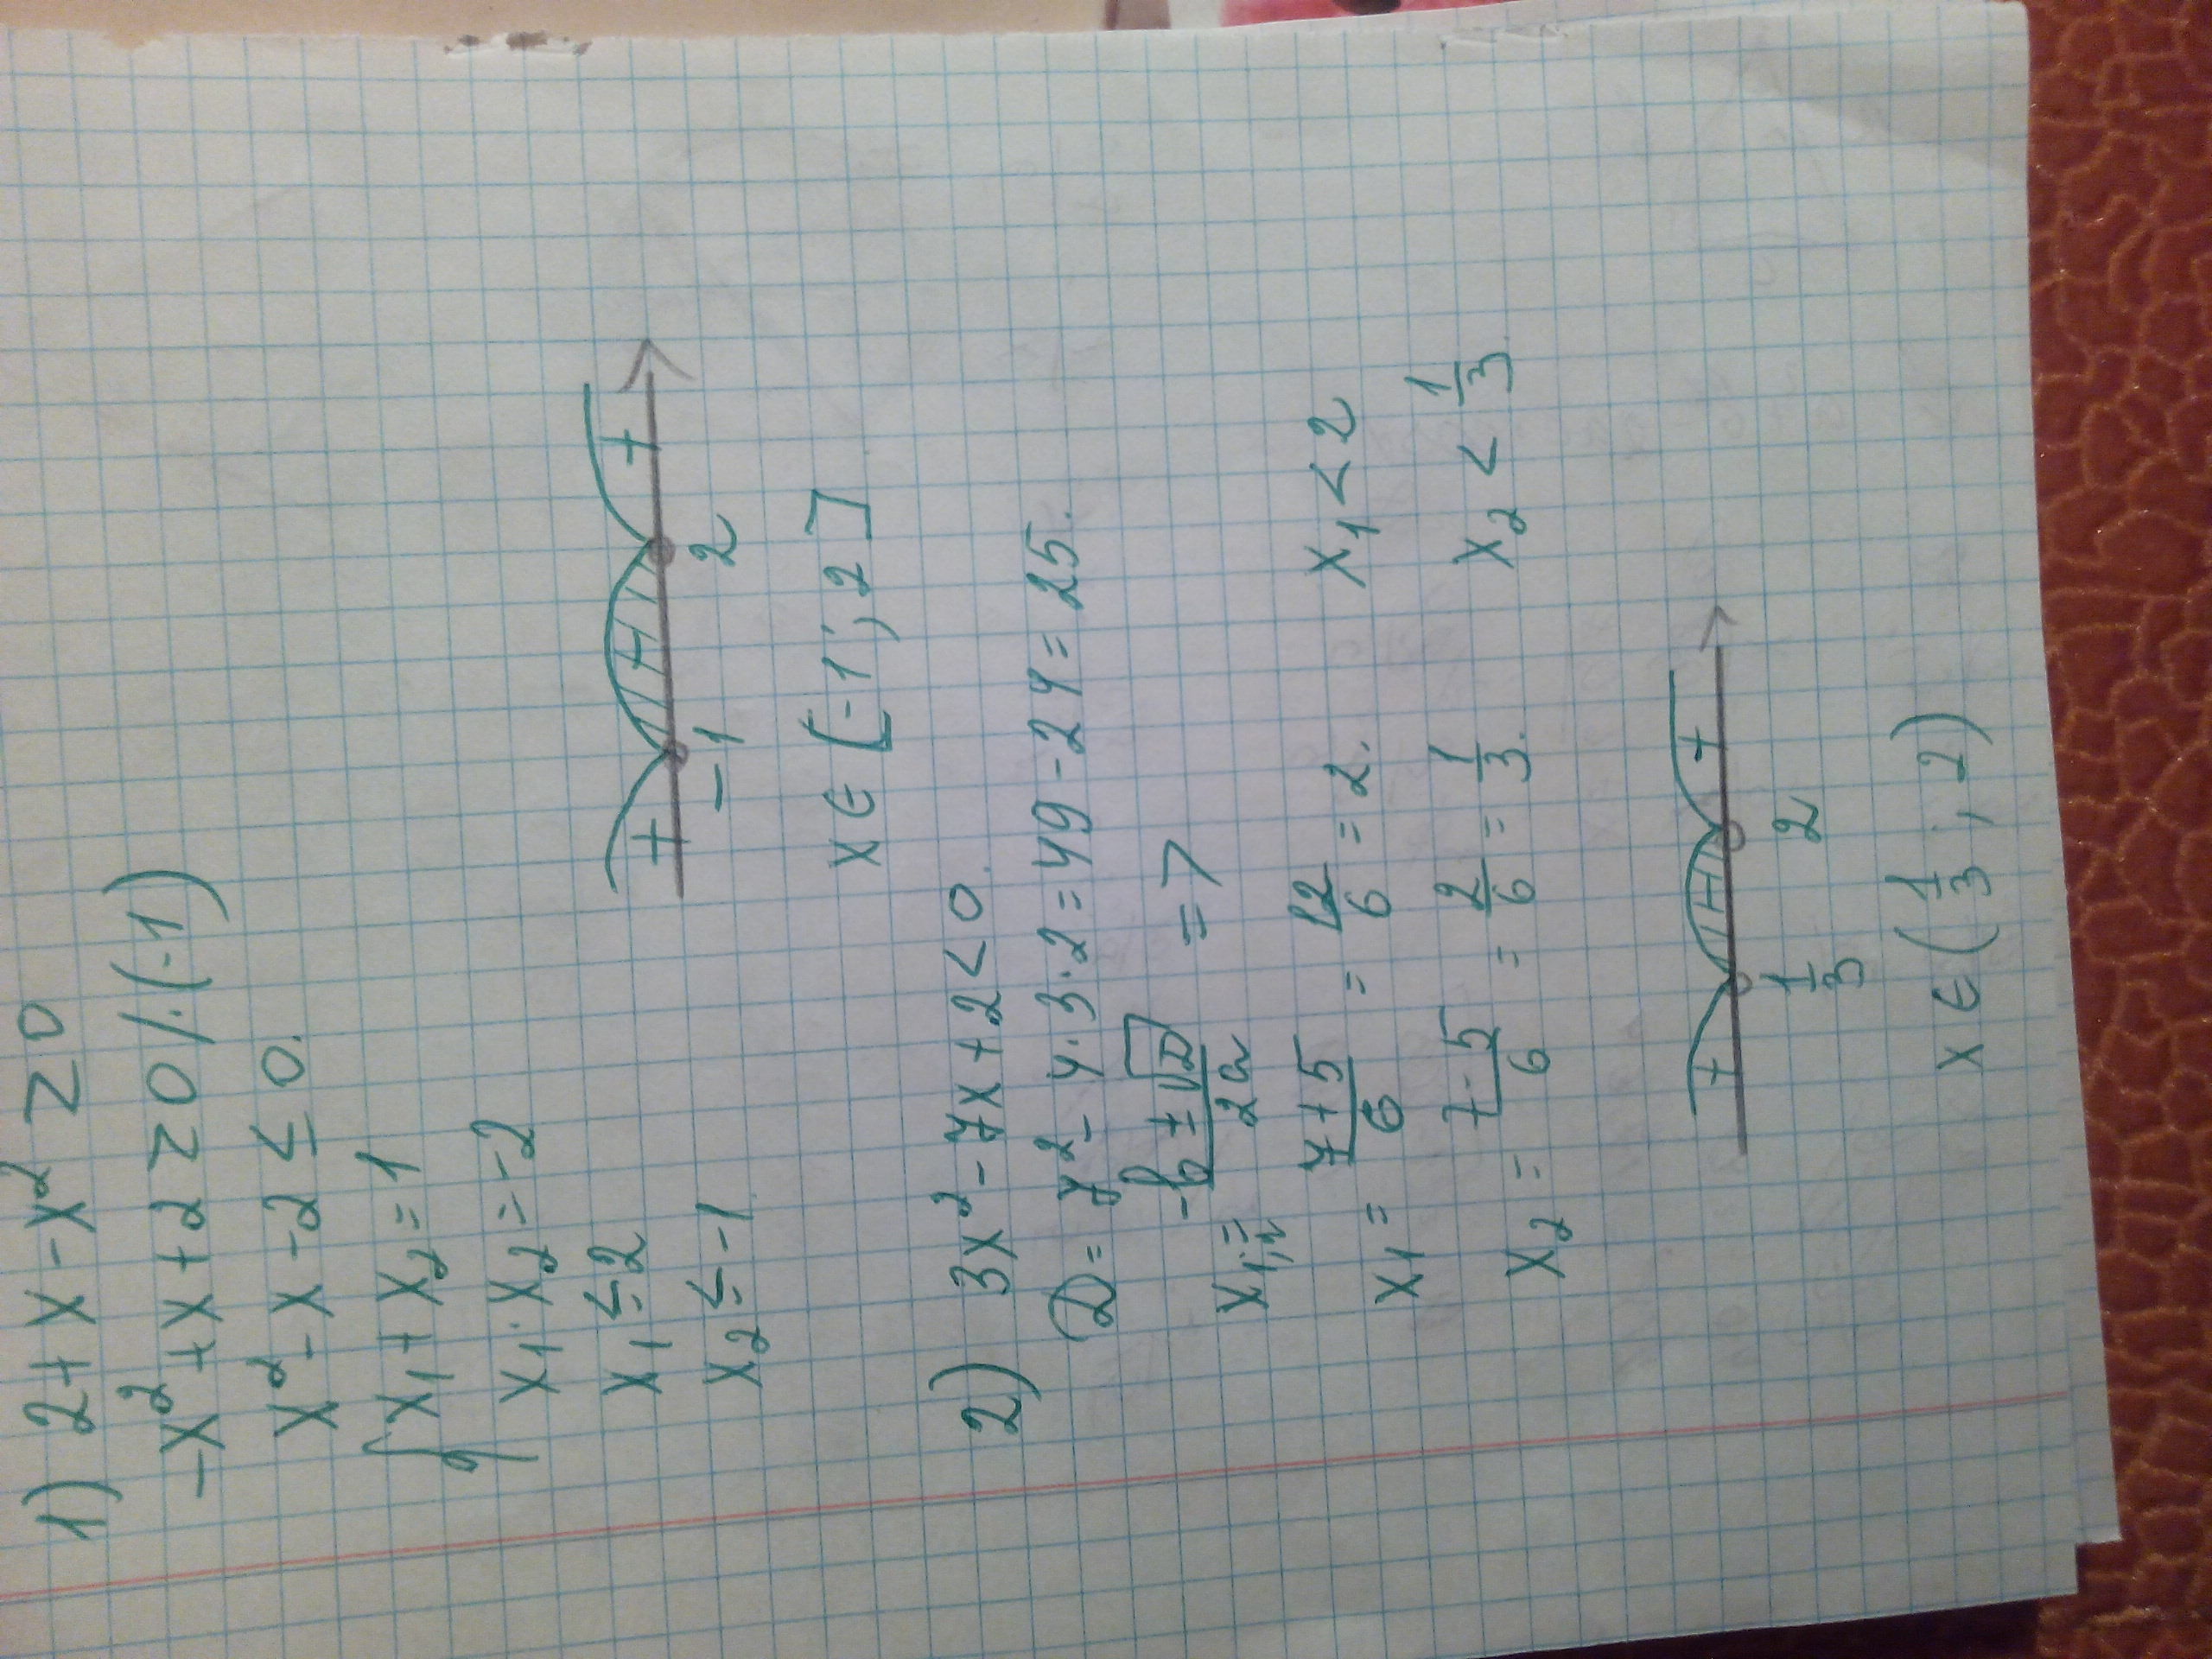 1) 2+x-x² ≥ 0
-x²+x+2 ≥ 0 /·(-1)
x²-x-2 ≤ 0.
{ x₁+x₂=1
x₁·x₂=-2
x₁ ≤ 2
x₂ ≤ -1
+ - +
-1 2
x ∈ [-1; 2]
2) 3x²-7x+2<0.
D = 7²-4·3·2=49-24=25.
x₁,₂ = (-b±√D)/2a =>
x₁ = (7+5)/6 = 12/6 = 2. x₁ < 2
x₂ = (7-5)/6 = 2/6 = 1/3. x₂ < 1/3
+ - +
1/3 2
x ∈ (1/3; 2)